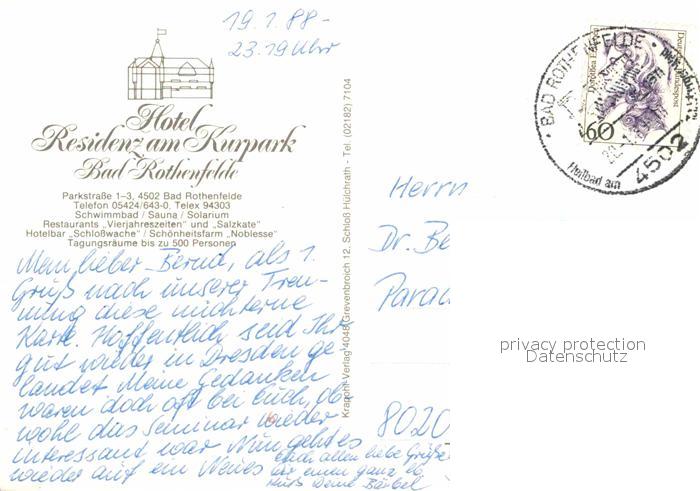 19.1.88-
23.19 Uhr
Hotel
Residenz am Kurpark
Bad Rothenfelde
Parkstraße 1–3, 4502 Bad Rothenfelde
Telefon 05424/643-0, Telex 94303
Schwimmbad / Sauna / Solarium
Restaurants „Vierjahreszeiten" und „Salzkate"
Hotelbar „Schloßwache" / Schönheitsfarm „Noblesse"
Tagungsräume bis zu 500 Personen
Mein lieber Bernd, als 1.
Gruß nach unserer Tren-
nung diese nüchterne
Karte. Hoffentlich seid Ihr
gut wieder in Dresden ge
landet. Meine Gedanken
waren doch oft bei Euch, ob
wohl das Seminar wieder
interessant war. Nun geht es
wieder auf ein Neues
Euch allen liebe Grüße
dir einen ganz
Kuß Deine Bärbel
Krapohl-Verlag 4048 Grevenbroich 12, Schloß Hülchrath - Tel. (02182) 7104
BAD ROTHENFELDE
Heilbad am
4502
Deutsche Bundespost
60
Herrn
Dr. Be
Parad
8020
privacy protection
Datenschutz